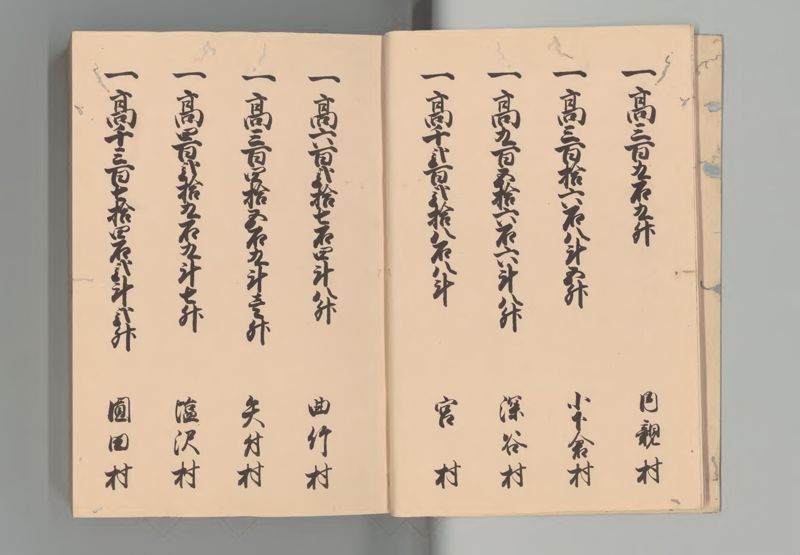 一高三百九石九升 円親村
一高三百拾六石八斗五升 小下倉村
一高九百五拾六石六斗八升 深谷村
一高千弐百弐拾八石八斗 宮村
一高六百弐拾七石四斗八升 曲竹村
一高三百四拾五石九斗壱升 矢付村
一高四百弐拾九石九斗七升 塩沢村
一高千三百七拾四石弐斗弐升 圓田村